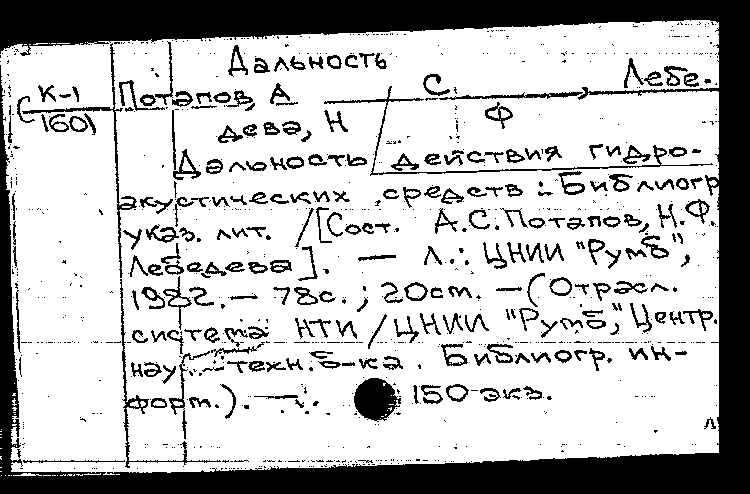 Дальность
К-1
1601
Потапов, А С Лебе-
дева, Н Ф
Дальность действия гидро-
акустических средств : Библиогр
указ. лит. / [Сост. А.С.Потапов, Н.Ф.
Лебедева]. — Л.: ЦНИИ "Румб",
1982. — 78с. ; 20см. — (Отрасл.
система НТИ / ЦНИИ "Румб", Центр.
науч. техн. б-ка . Библиогр. ин-
форм.). —
150 экз.